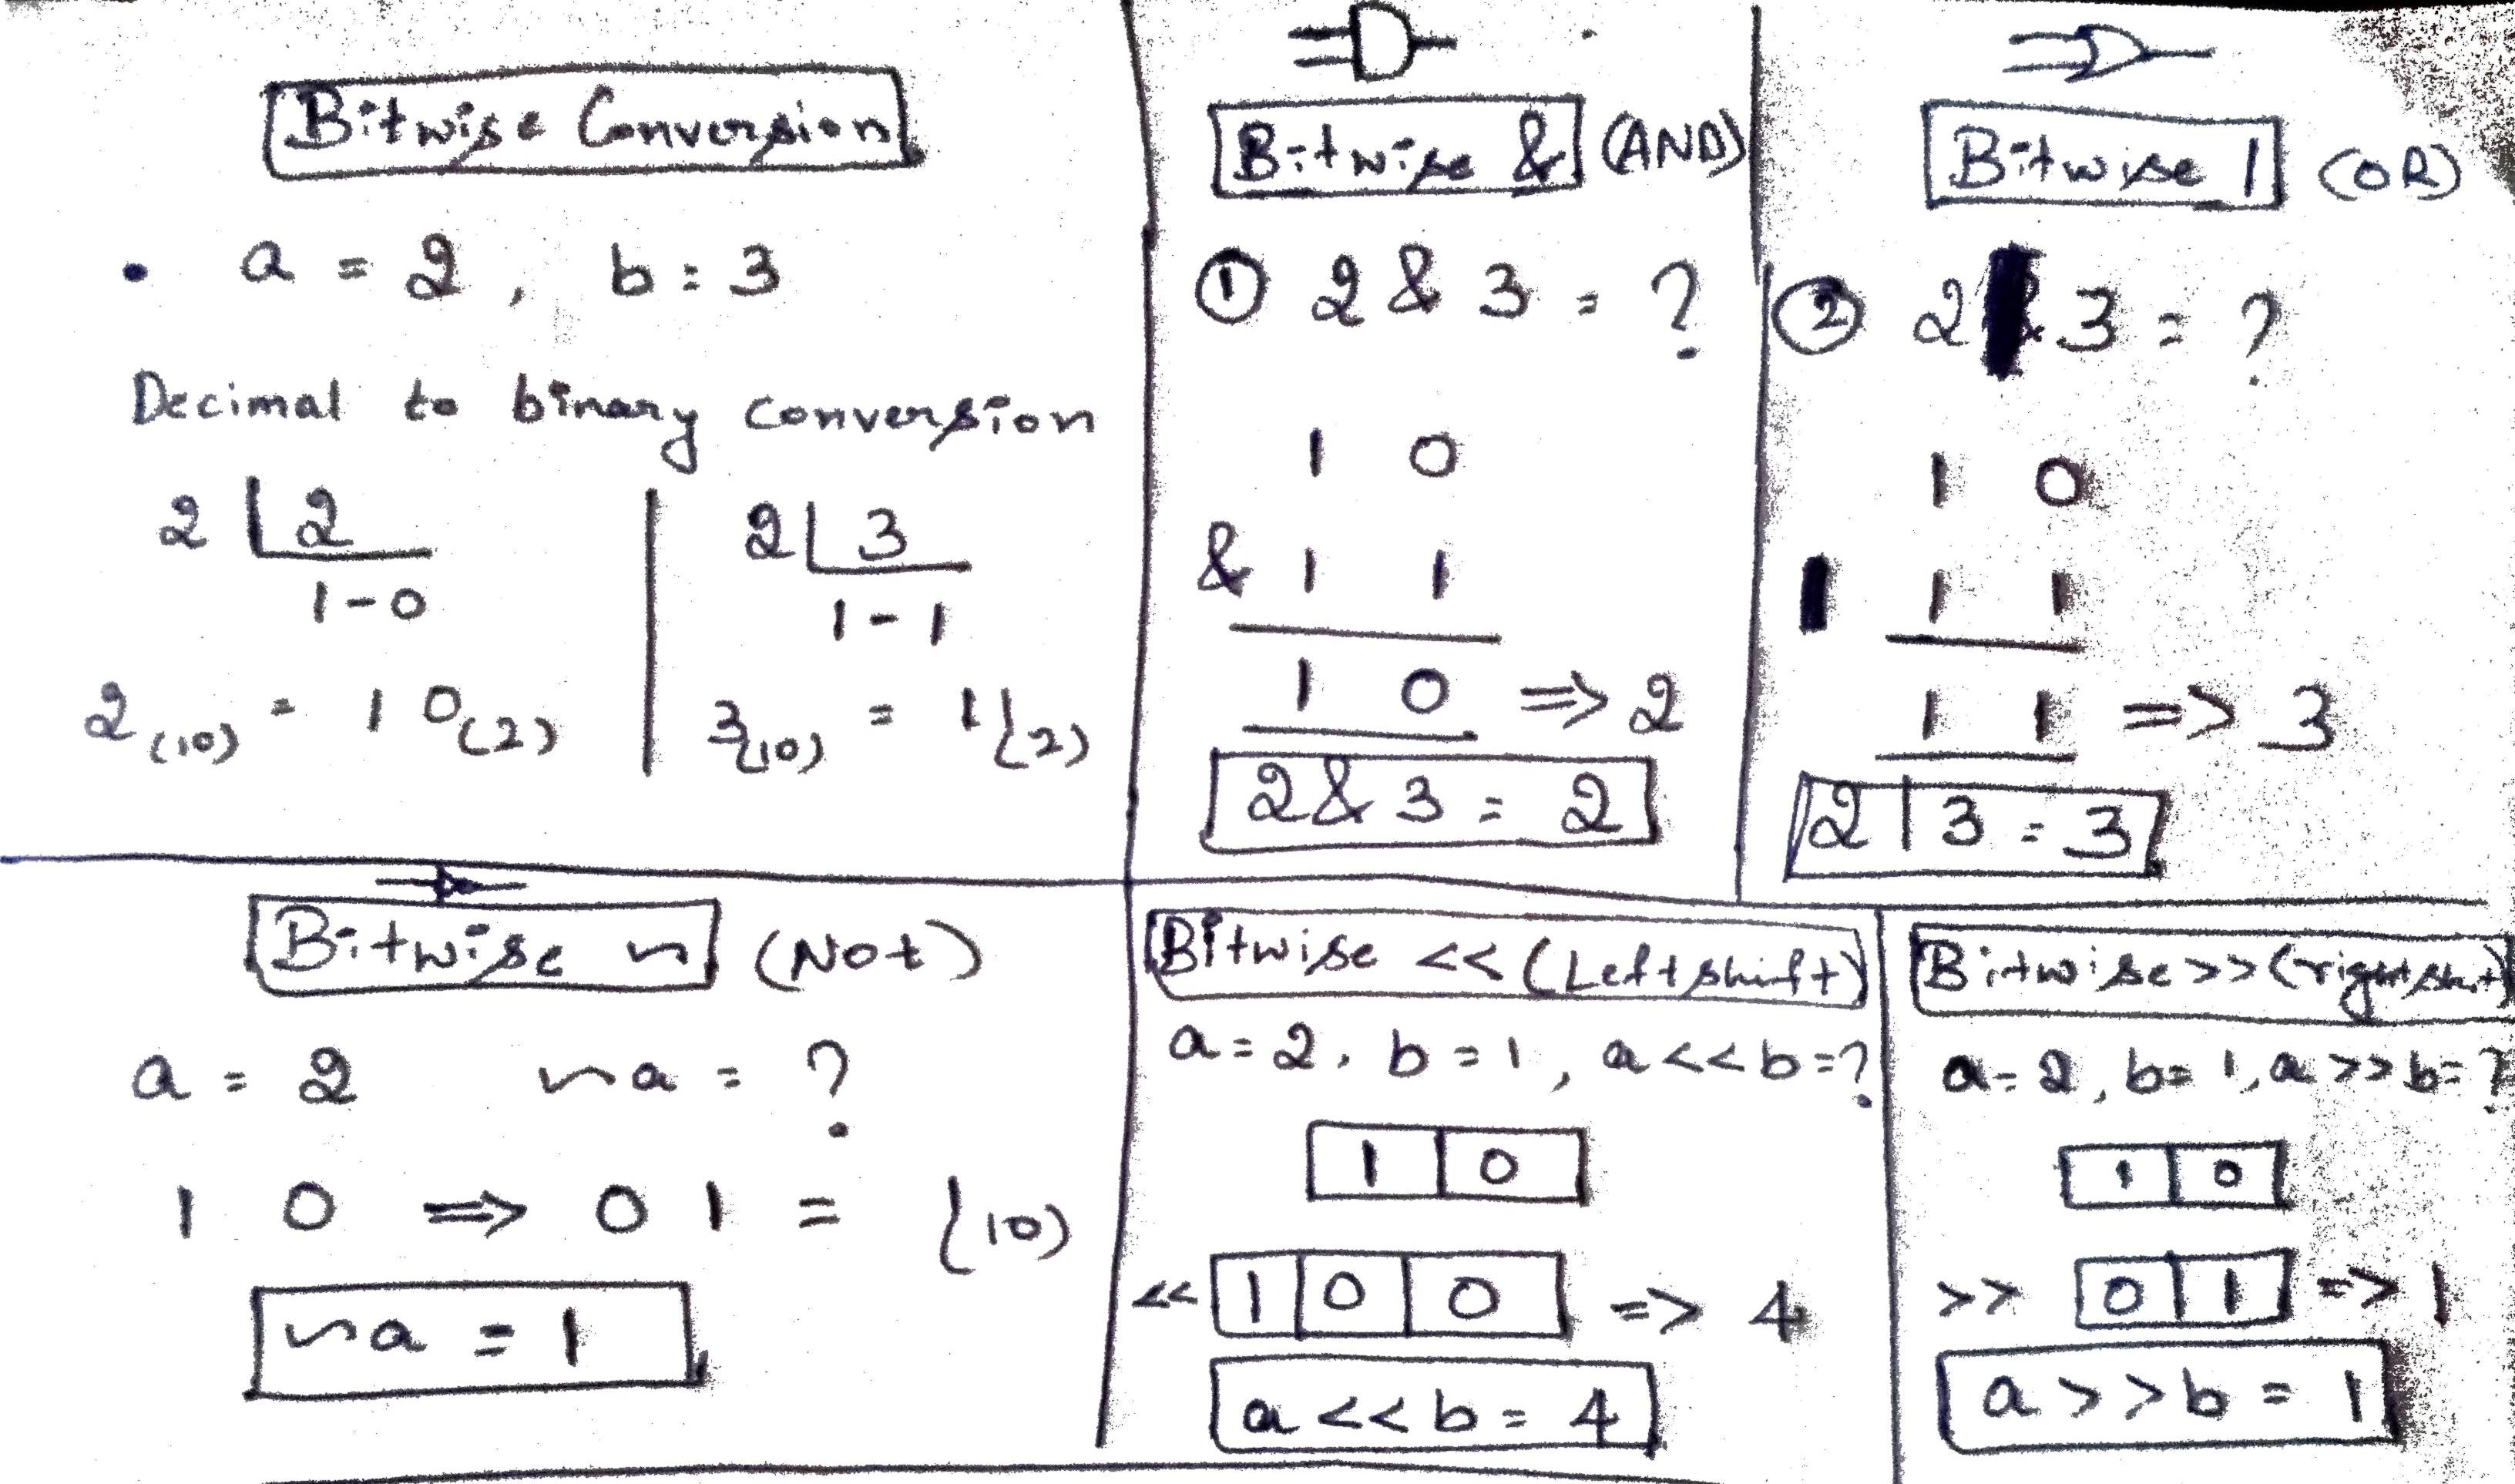 Bitwise Conversion
• a = 2, b = 3
Decimal to binary conversion
2 | 2
1 - 0
2(10) = 1 0(2)
2 | 3
1 - 1
3(10) = 11(2)
Bitwise & (AND)
① 2 & 3 = ?
1 0
& 1 1
1 0 => 2
2 & 3 = 2
Bitwise | (OR)
② 2 | 3 = ?
1 0
| 1 1
1 1 => 3
2 | 3 = 3
Bitwise ~ (Not)
a = 2 ~a = ?
1 0 => 0 1 = 1(10)
~a = 1
Bitwise << (Left shift)
a = 2, b = 1, a << b = ?
1 0
<< 1 0 0 => 4
a << b = 4
Bitwise >> (right shift)
a = 2, b = 1, a >> b = ?
1 0
>> 0 1 => 1
a >> b = 1